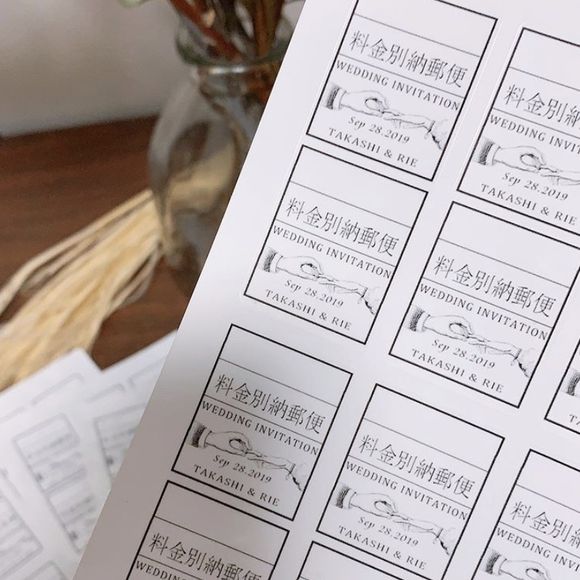 料金別納郵便
WEDDING INVITATION
Sep 28.2019
TAKASHI & RIE
料金別納郵便
WEDDING INVITATION
Sep 28.2019
TAKASHI & RIE
料金別納郵便
WEDDING INVITATION
Sep 28.2019
TAKASHI & RIE
料金別納郵便
WEDDING INVITATION
Sep 28.2019
TAKASHI & RIE
料金別納郵便
WEDDING INVITATION
Sep 28.2019
TAKASHI & RIE
料金別納郵便
WEDDING INVITATION
Sep 28.2019
TAKASHI & RIE
料金別納郵便
WEDDING
料金別納郵便
WEDDING INVITATION
Sep 28.2019